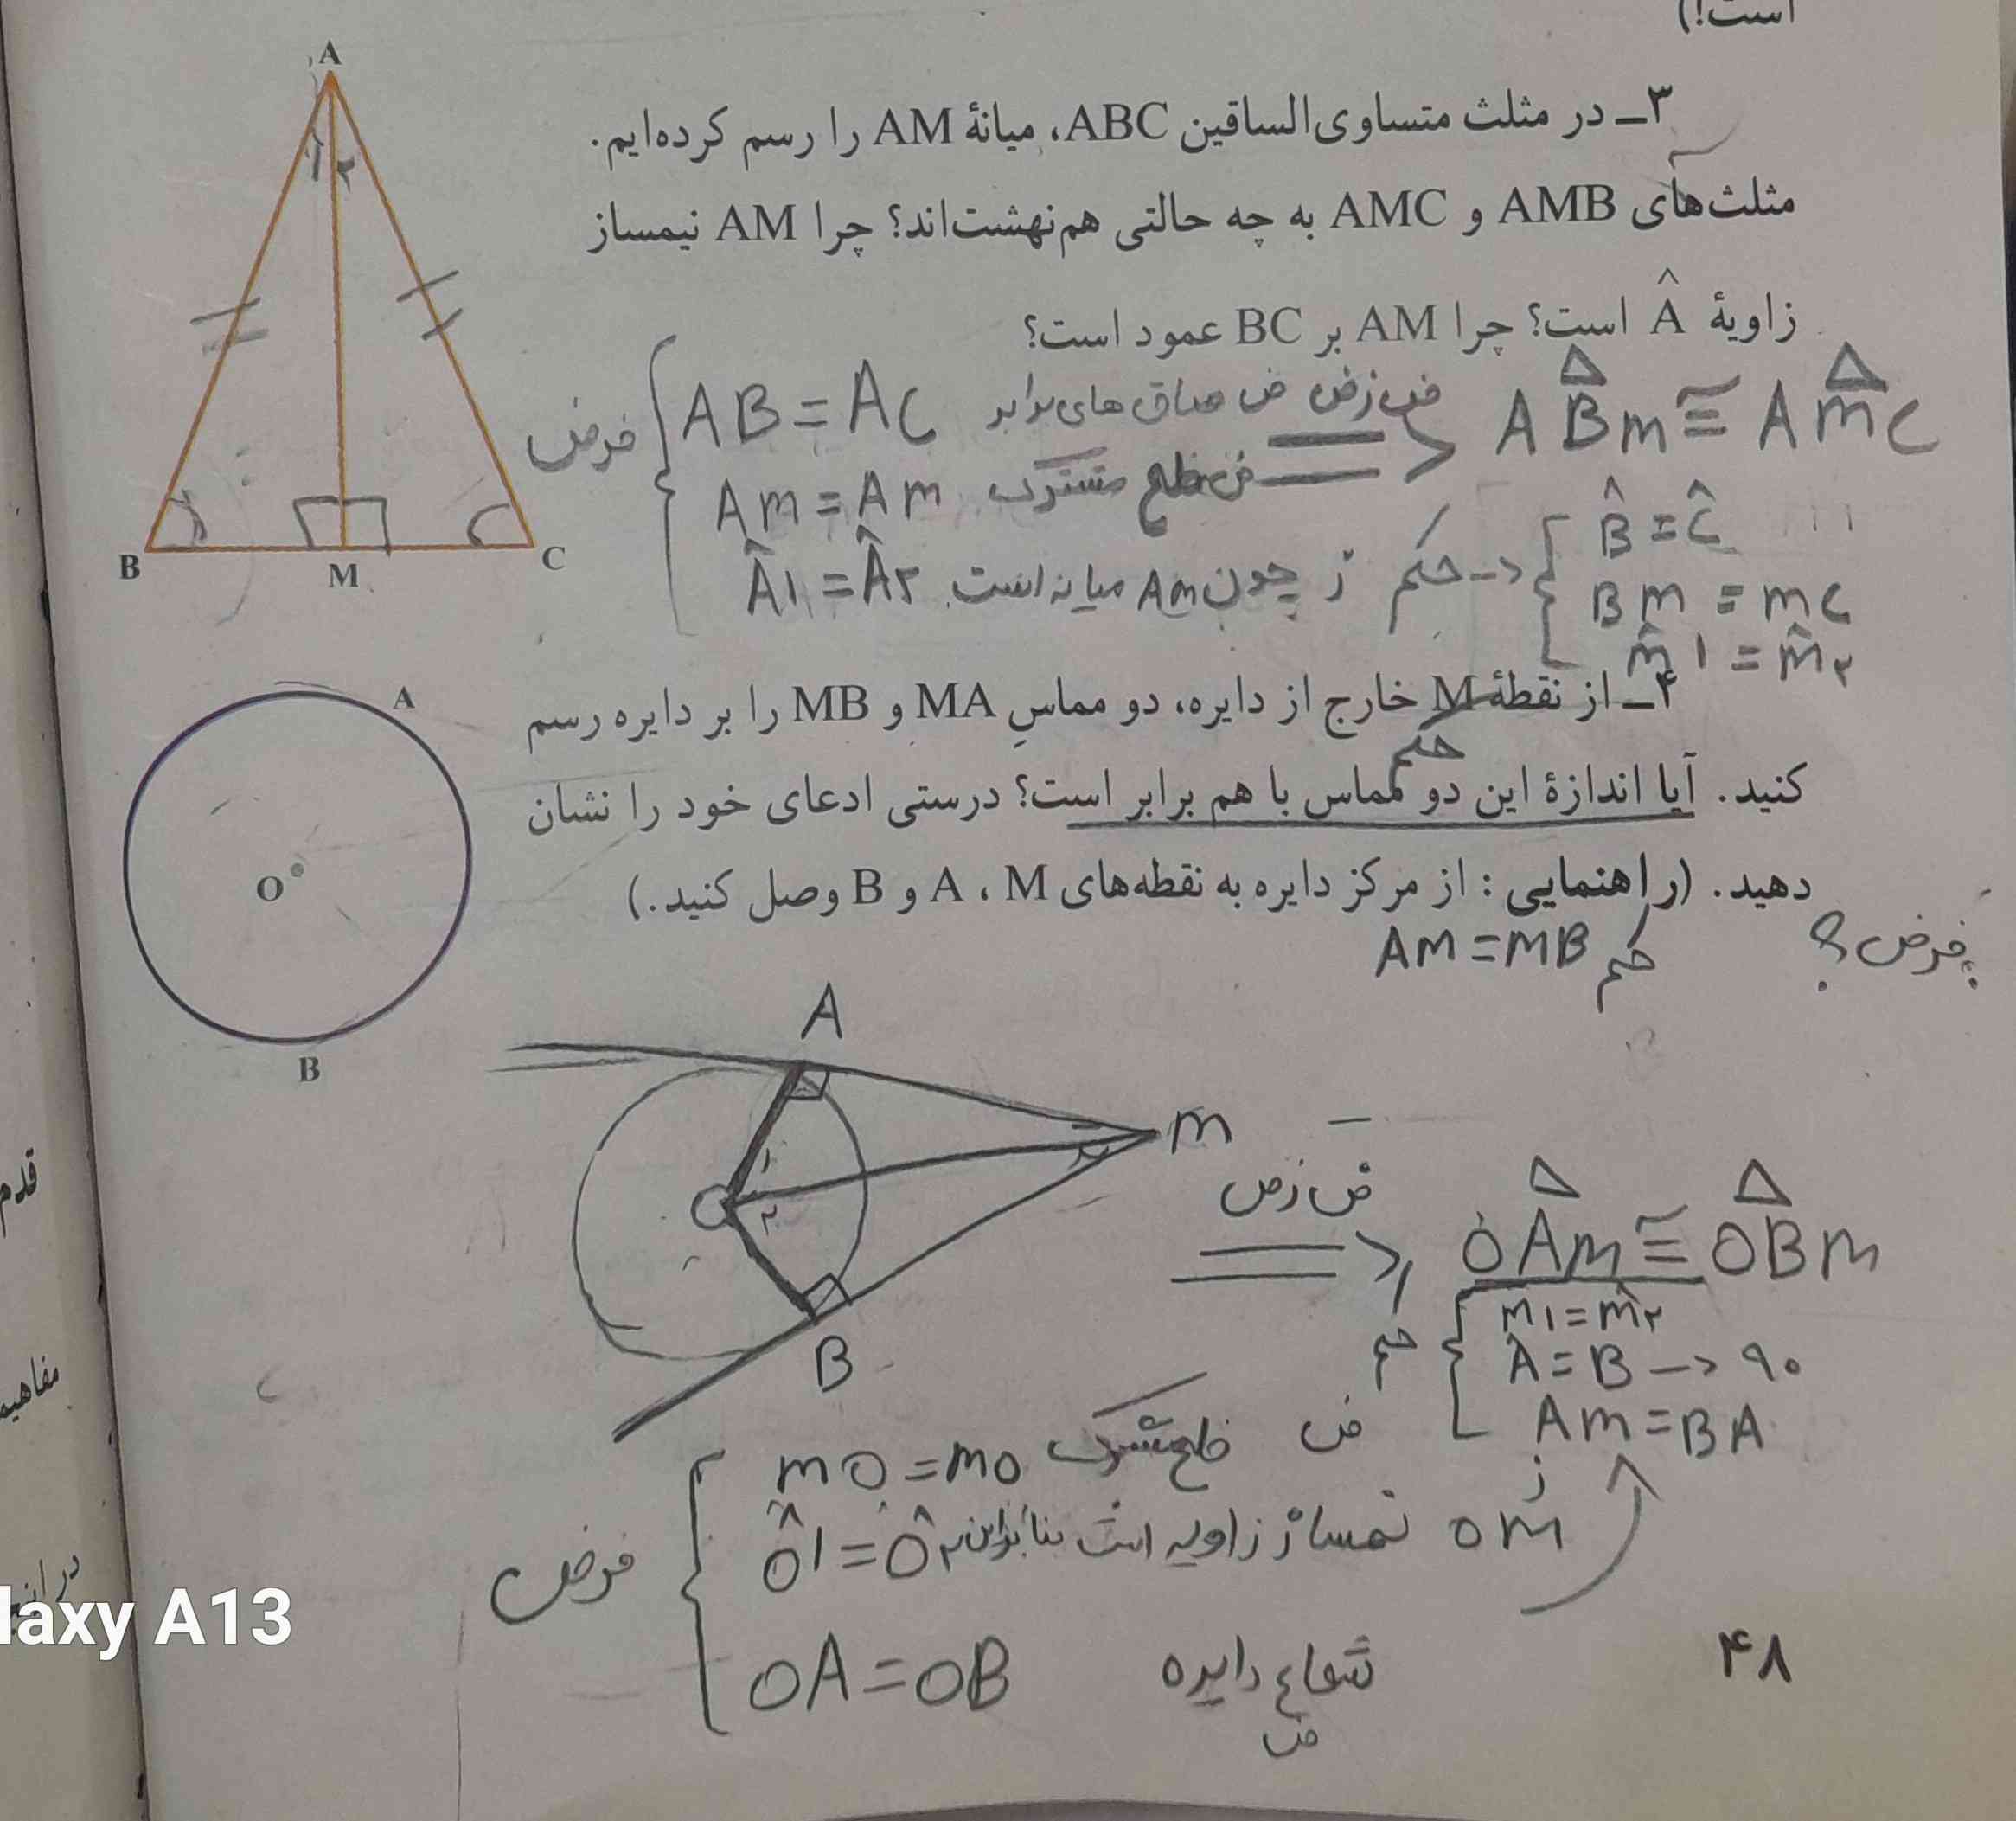 است!)
۳ــ در مثلث متساوی‌الساقین ABC، میانهٔ AM را رسم کرده‌ایم.
مثلث‌های AMB و AMC به چه حالتی هم‌نهشت‌اند؟ چرا AM نیمساز
زاویهٔ Â است؟ چرا AM بر BC عمود است؟
A
۱ ۲
B
M
C
فرض
AB = AC ض ساق های برابر
AM = AM ض ضلع مشترک
Â۱ = Â۲ ز چون AM میانه است
ض ز ض => ABM ≅ AMC
حکم ->
B̂ = Ĉ
BM = MC
M̂۱ = M̂۲
۴ــ از نقطهٔ M خارج از دایره، دو مماسِ MA و MB را بر دایره رسم
حکم
کنید. آیا اندازهٔ این دو مماس با هم برابر است؟ درستی ادعای خود را نشان
دهید. (راهنمایی : از مرکز دایره به نقطه‌های M ، A و B وصل کنید.)
A
O
B
فرض؟
حکم AM = MB
A
M
O
۱
۲
B
ض ز ض
=> OAM ≅ OBM
حکم
M۱ = M۲
Â = B -> ۹۰
AM = BA
فرض
MO = MO ضلع مشترک ض
Ô۱ = Ô۲ OM نیمساز زاویه است بنابراین ز
OA = OB شعاع دایره
ض
۴۸
قدم
مفاهیم
در اینجا
laxy A13